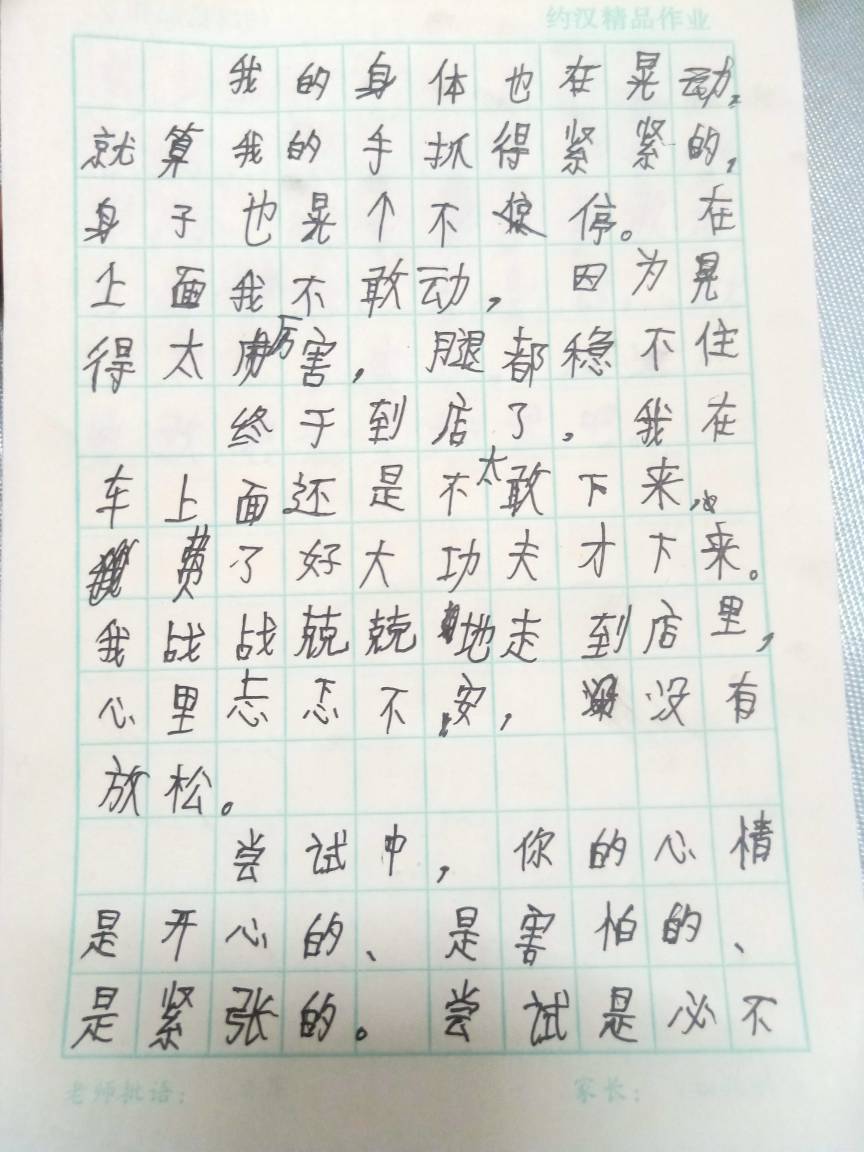 约汉精品作业
我的身体也在晃动,
就算我的手抓得紧紧的,
身子也晃个不停。在
上面我不敢动,因为晃
得太厉害,腿都稳不住
终于到店了。我在
车上面还是不太敢下来,
费了好大功夫才下来。
我战战兢兢地走到店里,
心里忐忑不安,没有
放松。
尝试中,你的心情
是开心的、是害怕的、
是紧张的。尝试是必不
老师批语:
家长: